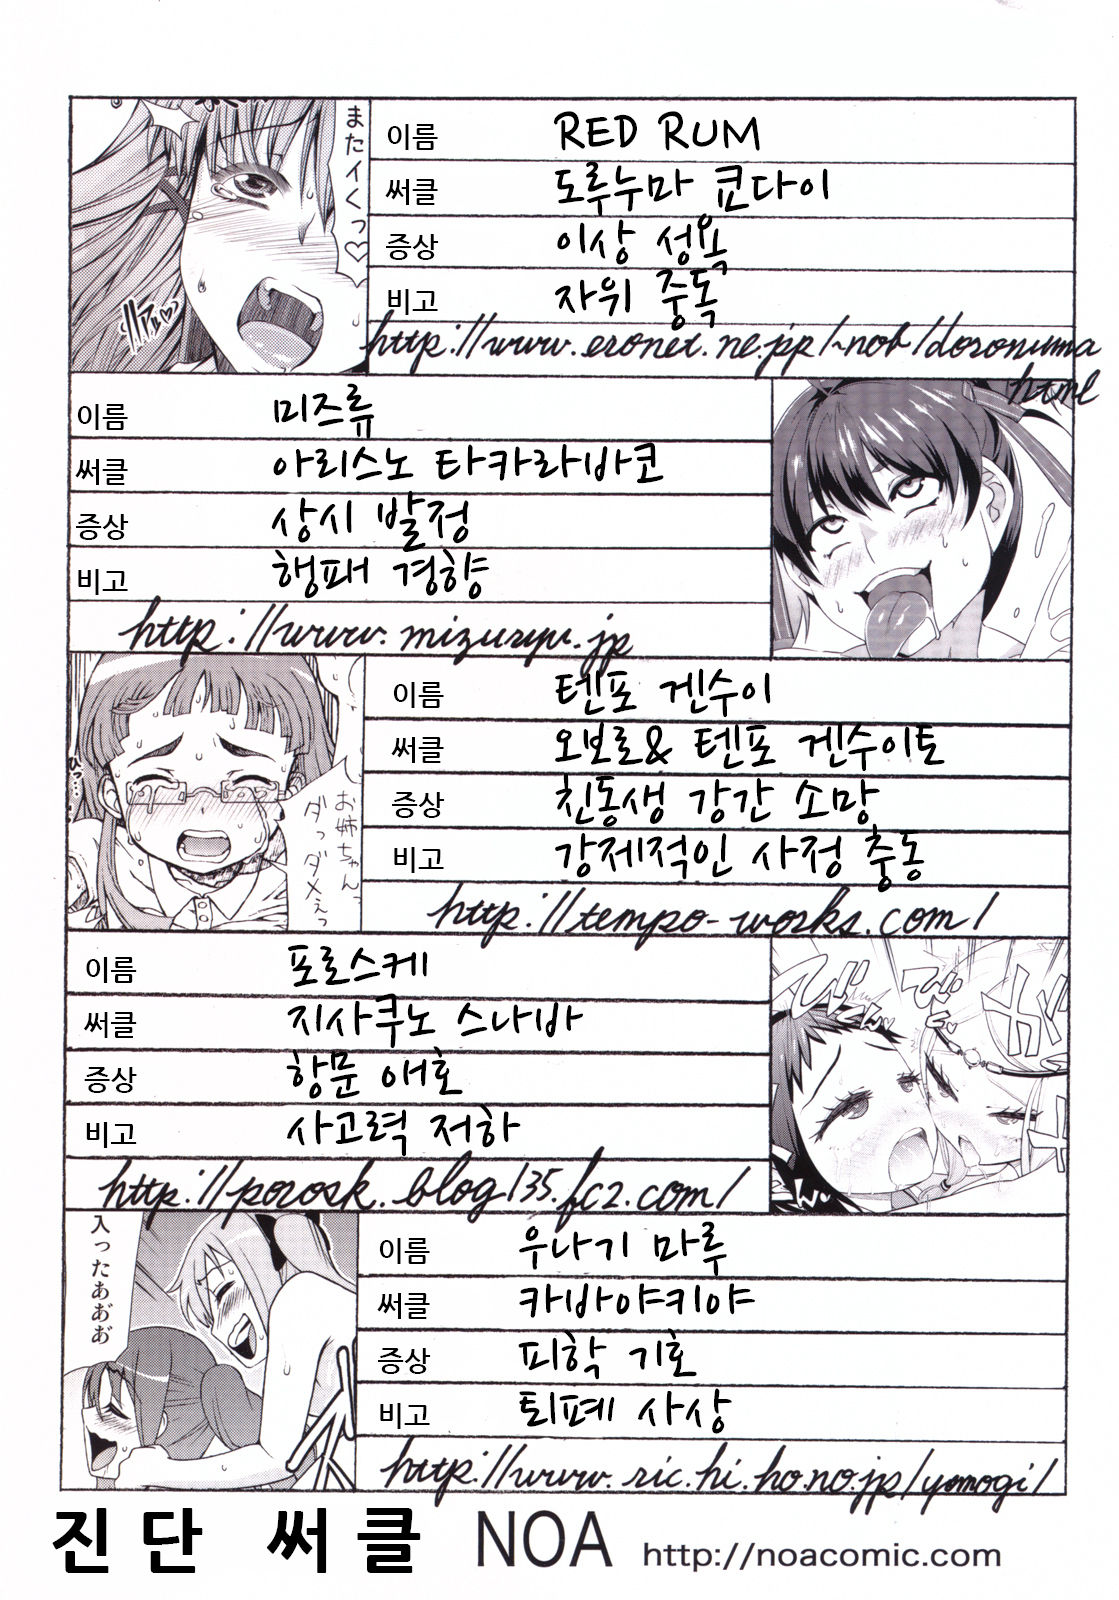 またイくっ♡
이름 RED RUM
써클 도루누마 쿄다이
증상 이상 성욕
비고 자위 중독
http://www.eronet.ne.jp/~nob/doronuma
html
이름 미즈류
써클 아리스노 타카라바코
증상 상시 발정
비고 행패 경향
http://www.mizuryu.jp
お姉ちゃんっ
ダっダメぇっ
이름 텐포 겐수이
써클 오보로& 텐포 겐수이토
증상 친동생 강간 소망
비고 강제적인 사정 충동
http://tempo-works.com/
이름 포로스케
써클 지사쿠노 스나바
증상 항문 애호
비고 사고력 저하
http://porosk.blog135.fc2.com/
入ったあぢぢ
이름 우나기 마루
써클 카바야키야
증상 피학 기호
비고 퇴폐 사상
http://www.ric.hi.ho.no.jp/yomogi/
진단 써클 NOA http://noacomic.com